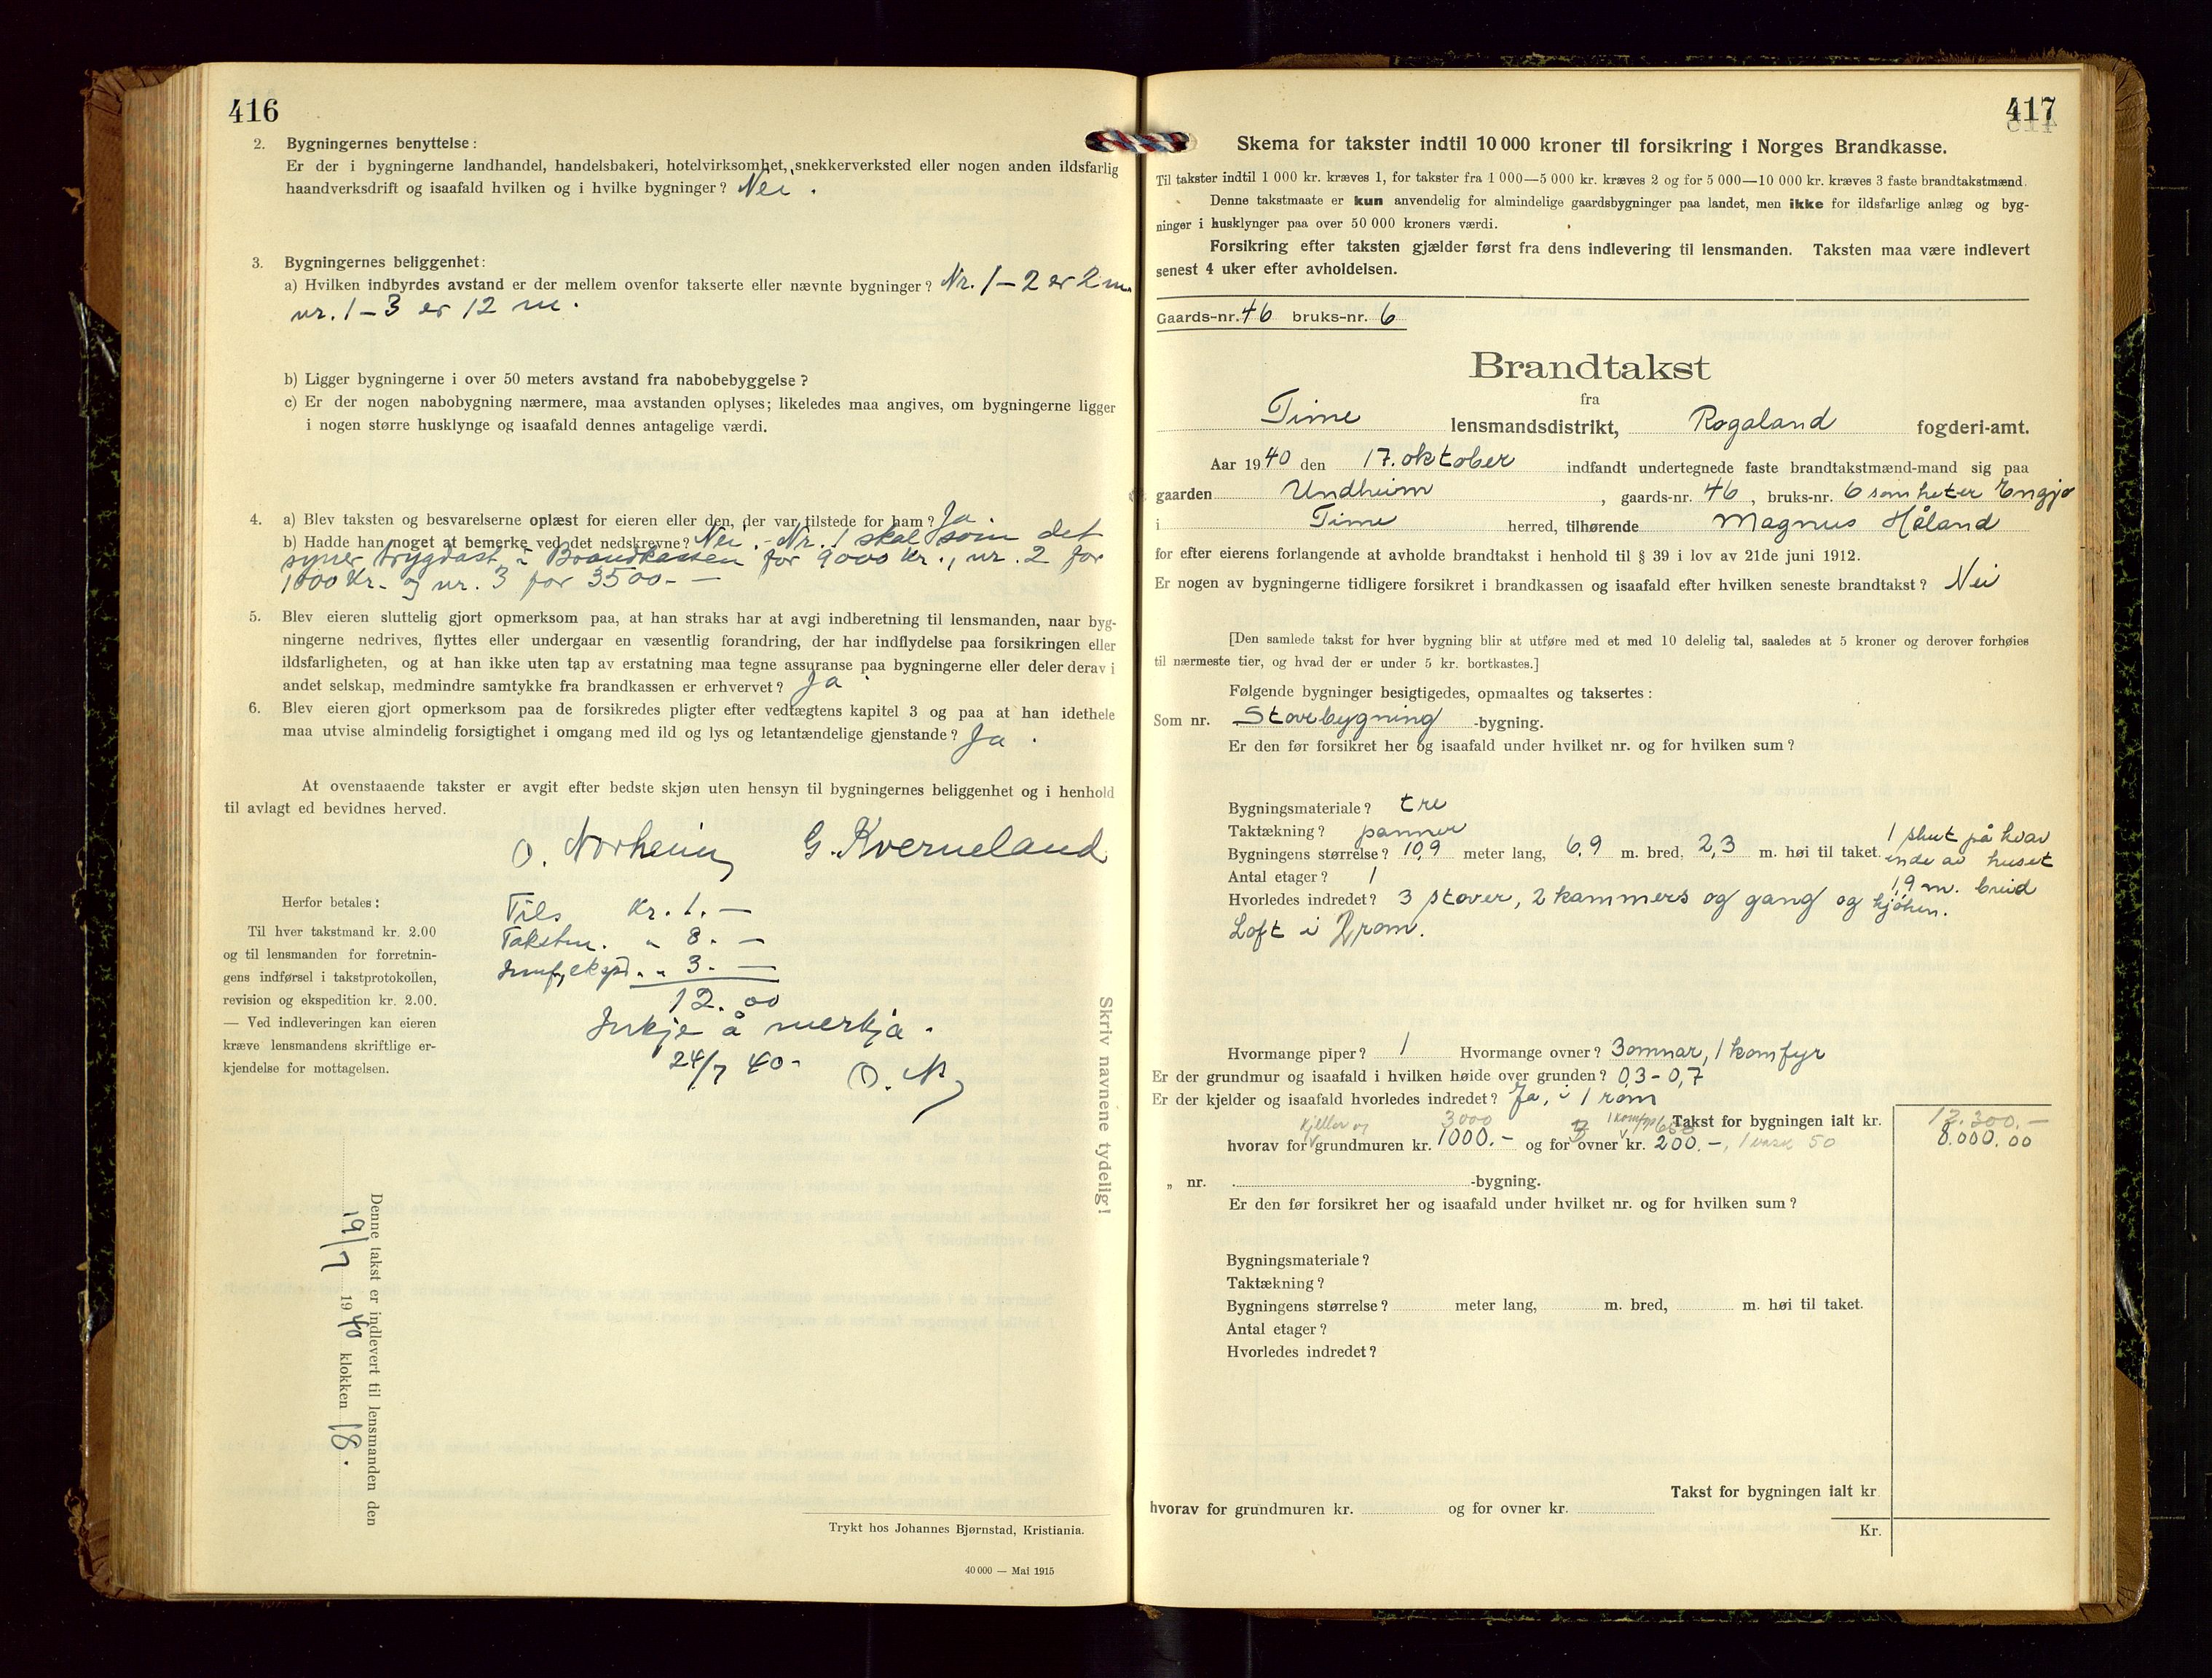 416
2. Bygningernes benyttelse:
Er der i bygningerne landhandel, handelsbakeri, hotelvirksomhet, snekkerverksted eller nogen anden ildsfarlig
haandverksdrift og isaafald hvilken og i hvilke bygninger? Nei.
3. Bygningernes beliggenhet:
a) Hvilken indbyrdes avstand er der mellem ovenfor takserte eller nævnte bygninger? Nr. 1-2 er 2 m.
nr. 1-3 er 12 m.
b) Ligger bygningerne i over 50 meters avstand fra nabobebyggelse?
c) Er der nogen nabobygning nærmere, maa avstanden oplyses; likeledes maa angives, om bygningerne ligger
i nogen større husklynge og isaafald dennes antagelige værdi.
4. a) Blev taksten og besvarelserne oplæst for eieren eller den, der var tilstede for ham? Ja.
b) Hadde han noget at bemerke ved det nedskrevne? Nei. - Nr. 1 skal som det
syner trygdast i Brandkassen for 9000 kr., nr. 2 for
1000 Kr. og nr. 3 for 3500.-
5. Blev eieren sluttelig gjort opmerksom paa, at han straks har at avgi indberetning til lensmanden, naar byg-
ningerne nedrives, flyttes eller undergaar en væsentlig forandring, der har indflydelse paa forsikringen eller
ildsfarligheten, og at han ikke uten tap av erstatning maa tegne assuranse paa bygningerne eller deler derav i
andet selskap, medmindre samtykke fra brandkassen er erhvervet? Ja
6. Blev eieren gjort opmerksom paa de forsikredes pligter efter vedtægtens kapitel 3 og paa at han idethele
maa utvise almindelig forsigtighet i omgang med ild og lys og letantændelige gjenstande? Ja.
At ovenstaaende takster er avgit efter bedste skjøn uten hensyn til bygningernes beliggenhet og i henhold
til avlagt ed bevidnes herved.
O. Norheim G. Kverneland
Herfor betales:
Til hver takstmand kr. 2.00
og til lensmanden for forretnin-
gens indførsel i takstprotokollen,
revision og ekspedition kr. 2.00.
— Ved indleveringen kan eieren
kræve lensmandens skriftlige er-
kjendelse for mottagelsen.
Tils Kr. 1.-
Takstm. " 8.-
" 3.-
12.00
Inkje å merkja.
24/7 40- O. N.
Skriv navnene tydelig!
Denne takst er indlevert til lensmanden den
19/7 1940 klokken 18.
Trykt hos Johannes Bjørnstad, Kristiania.
40 000 — Mai 1915
417
Skema for takster indtil 10 000 kroner til forsikring i Norges Brandkasse.
Til takster indtil 1 000 kr. kræves 1, for takster fra 1 000—5 000 kr. kræves 2 og for 5 000—10 000 kr. kræves 3 faste brandtakstmænd.
Denne takstmaate er kun anvendelig for almindelige gaardsbygninger paa landet, men ikke for ildsfarlige anlæg og byg-
ninger i husklynger paa over 50 000 kroners værdi.
Forsikring efter taksten gjælder først fra dens indlevering til lensmanden. Taksten maa være indlevert
senest 4 uker efter avholdelsen.
Gaards-nr. 46 bruks-nr. 6
Brandtakst
fra
Time lensmandsdistrikt, Rogaland fogderi-amt.
Aar 1940 den 17. oktober indfandt undertegnede faste brandtakstmænd-mand sig paa
gaarden Undheim, gaards-nr. 46, bruks-nr. 6 som heter Engjo
i Time herred, tilhørende Magnus Håland
for efter eierens forlangende at avholde brandtakst i henhold til § 39 i lov av 21de juni 1912.
Er nogen av bygningerne tidligere forsikret i brandkassen og isaafald efter hvilken seneste brandtakst? Nei
[Den samlede takst for hver bygning blir at utføre med et med 10 delelig tal, saaledes at 5 kroner og derover forhøies
til nærmeste tier, og hvad der er under 5 kr. bortkastes.]
Følgende bygninger besigtigedes, opmaaltes og taksertes:
Som nr. Stovebygning -bygning.
Er den før forsikret her og isaafald under hvilket nr. og for hvilken sum?
Bygningsmateriale? tre
Taktækning? panner
Bygningens størrelse? 10,9 meter lang, 6,9 m. bred, 2,3 m. høi til taket. 1 skut på hvar
ende av huset
1,9 m. breid
Antal etager? 1
Hvorledes indredet? 3 stover, 2 kammers og gang og kjøken.
Loft i 2 rom.
Hvormange piper? 1 Hvormange ovner? 3 omnar, 1 komfyr
Er der grundmur og isaafald i hvilken høide over grunden? 0,3-0,7
Er der kjelder og isaafald hvorledes indredet? Ja, i 1 rom
Takst for bygningen ialt kr. 12.300.-
kjeller og 3000 3 1 komfyr 650
hvorav for grundmuren kr. 1000.- og for ovner kr. 200.-, 1 vask 50 8.000.00
„ nr. -bygning.
Er den før forsikret her og isaafald under hvilket nr. og for hvilken sum?
Bygningsmateriale?
Taktækning?
Bygningens størrelse? meter lang, m. bred, m. høi til taket.
Antal etager?
Hvorledes indredet?
Takst for bygningen ialt kr.
hvorav for grundmuren kr. og for ovner kr.
Kr.